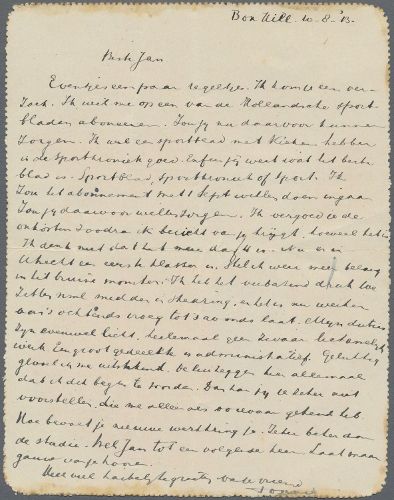 Box Hill. 10-8-'13.
Beste Jan
Eventjes een paar regeltjes. Ik kom je een ver-
zoek. Ik wil me op een van de Hollandsche sport-
bladen abonneeren. Zou jij nu daarvoor kunnen
zorgen. Ik wil een sportblad met Kieken hebben
is de Sportkroniek goed. Enfin jij weet wat het beste
blad is. Sportblad, Sportkroniek of Sport. Ik
zou het abonnement met 1 Sept willen doen ingaan
Zou jij daarvoor willen zorgen. Ik vergoed je de
onkosten zoodra ik bericht van je krijgt, hoeveel het is
Ik denk niet dat het meer dan is. Nu er in
Utrecht een eerste klasser is, stel ik weer meer belang
in het bruine monster. Ik heb het verbazend druk. We
zitten nu midden in shearing, en let is nu werken
van 's ochtends vroeg tot 's avonds laat. Mijn duties
zijn evenwel licht, heelemaal geen zwaar lichamelijk
werk. En groot gedeelte is administratief. Gelukkig
gevoel ik me uitstekend. Ze zeggen hier allemaal
dat ik dik begin te worden. Dan kan jij je zeker niet
voorstellen, die me alleen als gekend heb
Hoe bevalt je nieuwe werkkring je. Zeker beter dan
de studie. Wel Jan tot een volgende keer. Laat maar
gauw van je hooren.
Met veel hartelijke groeten van je vriend